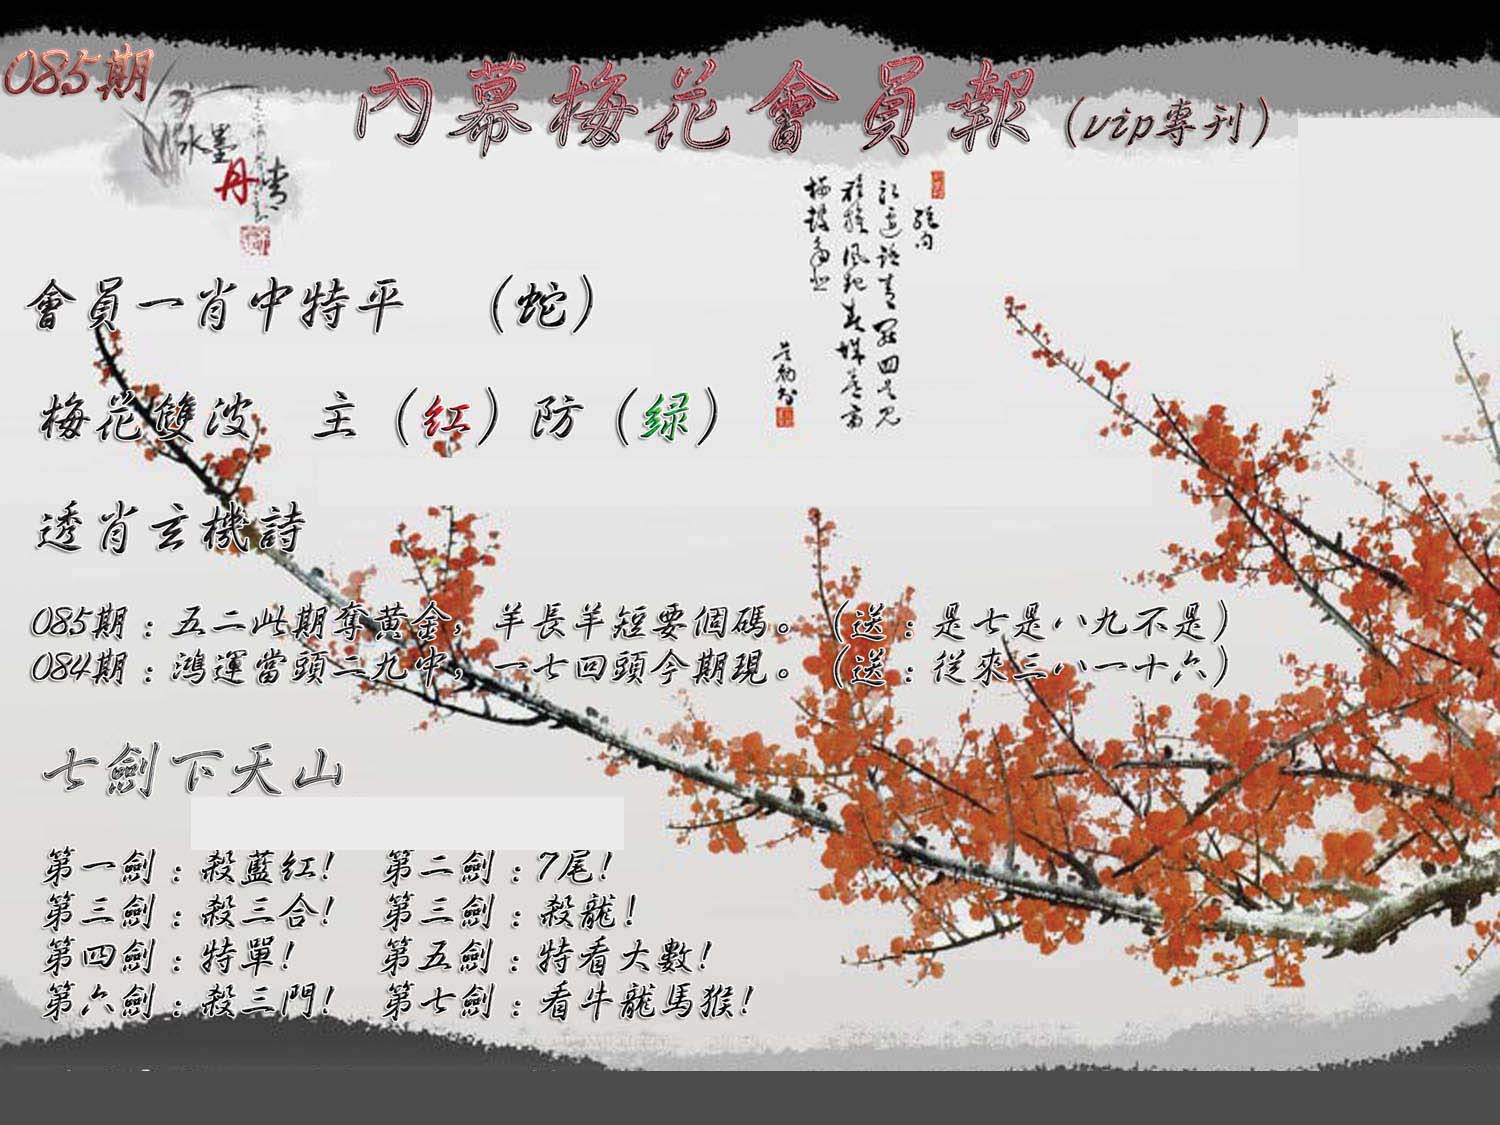 085期
內幕梅花會員報（vip專刊）
水墨
丹青
會員一肖中特平　（蛇）
梅花雙波　主（红）防（绿）
透肖玄機詩
085期：五二此期奪黄金，羊長羊短要個碼。（送：是七是八九不是）
084期：鴻運當頭二九中，一七回頭今期現。（送：從來三八一十六）
七劍下天山
第一劍：殺藍红！　第二劍：7尾！
第三劍：殺三合！　第三劍：殺龍！
第四劍：特單！　第五劍：特看大數！
第六劍：殺三門！　第七劍：看牛龍馬猴！